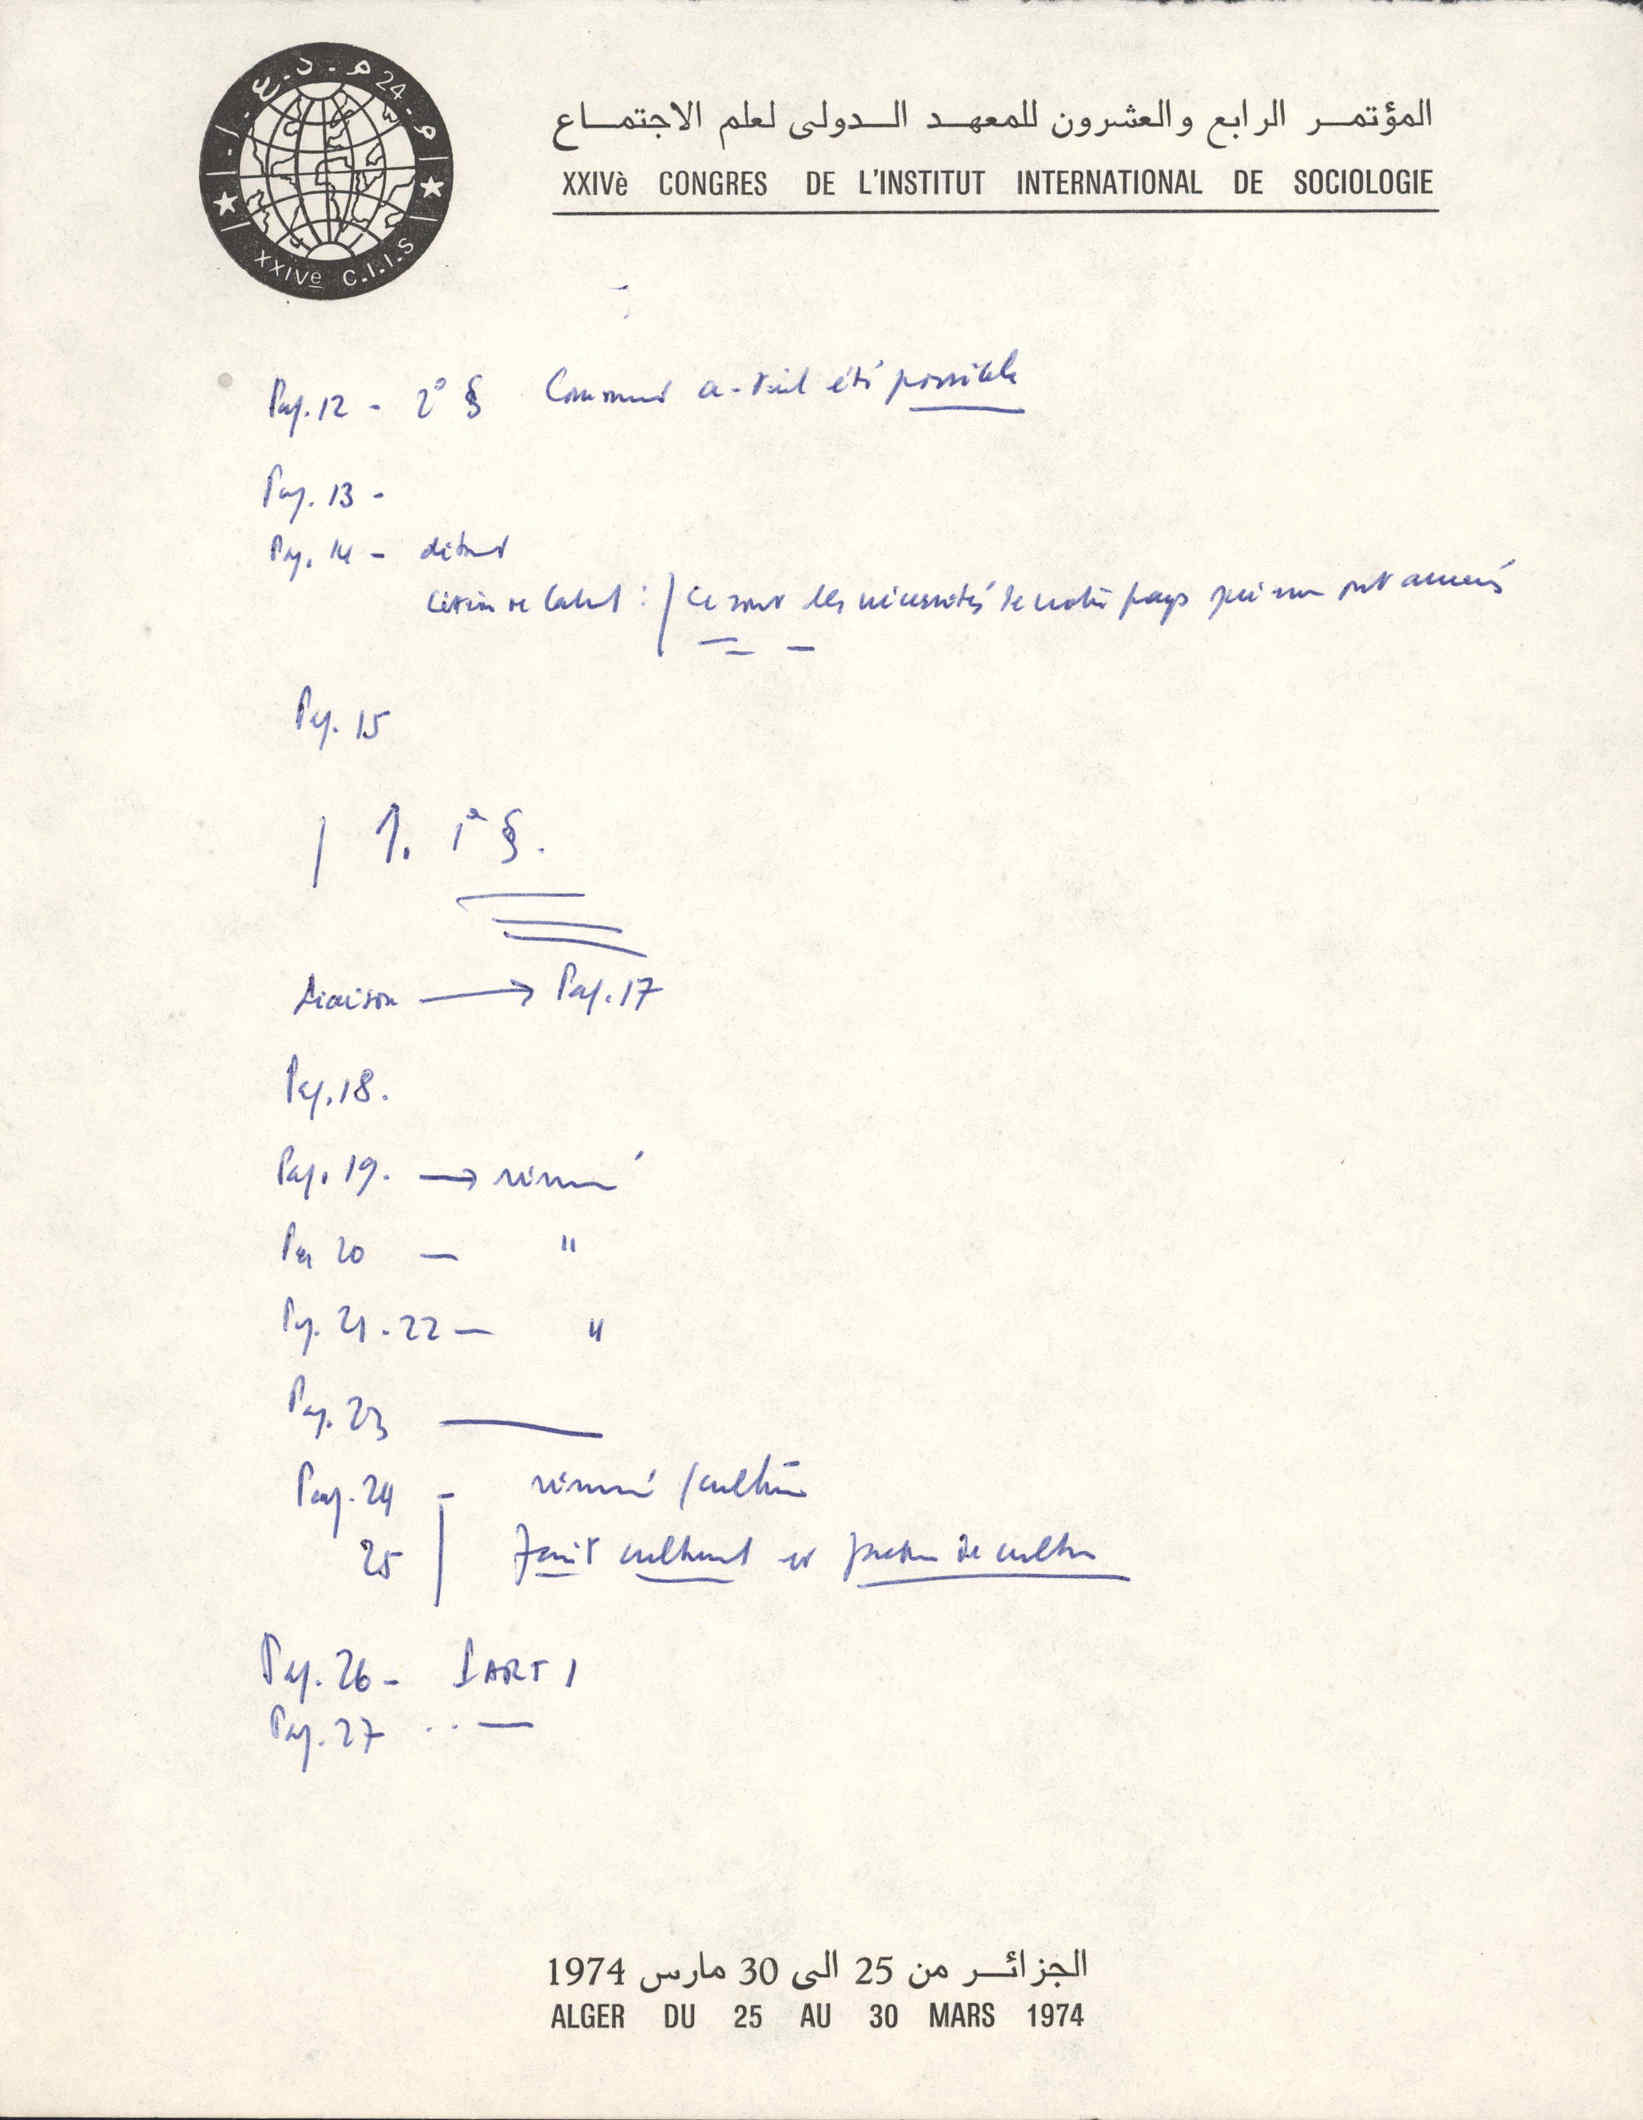 م . د . ع . ا . م - 24
XXIVe C.I.I.S
المؤتمر الرابع والعشرون للمعهد الدولى لعلم الاجتماع
XXIVè CONGRES DE L'INSTITUT INTERNATIONAL DE SOCIOLOGIE
Pag. 12 - 2° § Comment a-t-il été possible
Pag. 13 -
Pag. 14 - début
Cabral : / Ce sont les nécessités de notre pays qui nous ont amenés
Pag. 15
/ 1. 1° §.
Liaison → Pag. 17
Pag. 18.
Pag. 19. → résumé
Pag 20 — "
Pag. 21-22 — "
Pag. 23 —
Pag. 24 - résumé / culture
25 | Fait culturel et de culture
Pag. 26 - PART 1
Pag. 27 .. —
الجزائر من 25 الى 30 مارس 1974
ALGER DU 25 AU 30 MARS 1974